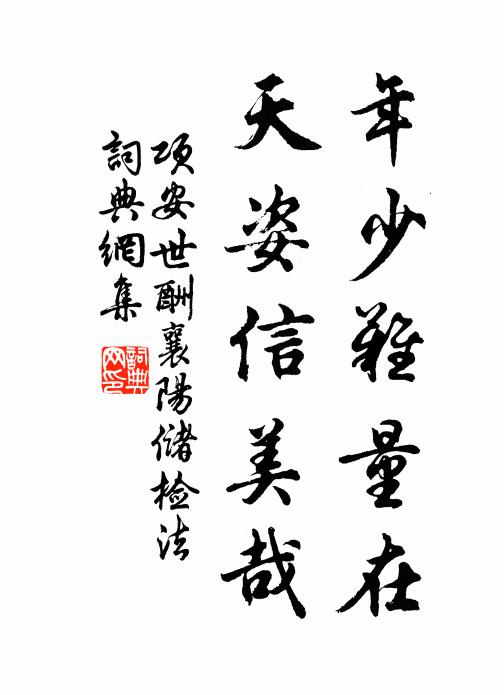 年少难量在
天姿信美哉
项安世酬襄陽儲检法
詞典網集
詞典网印